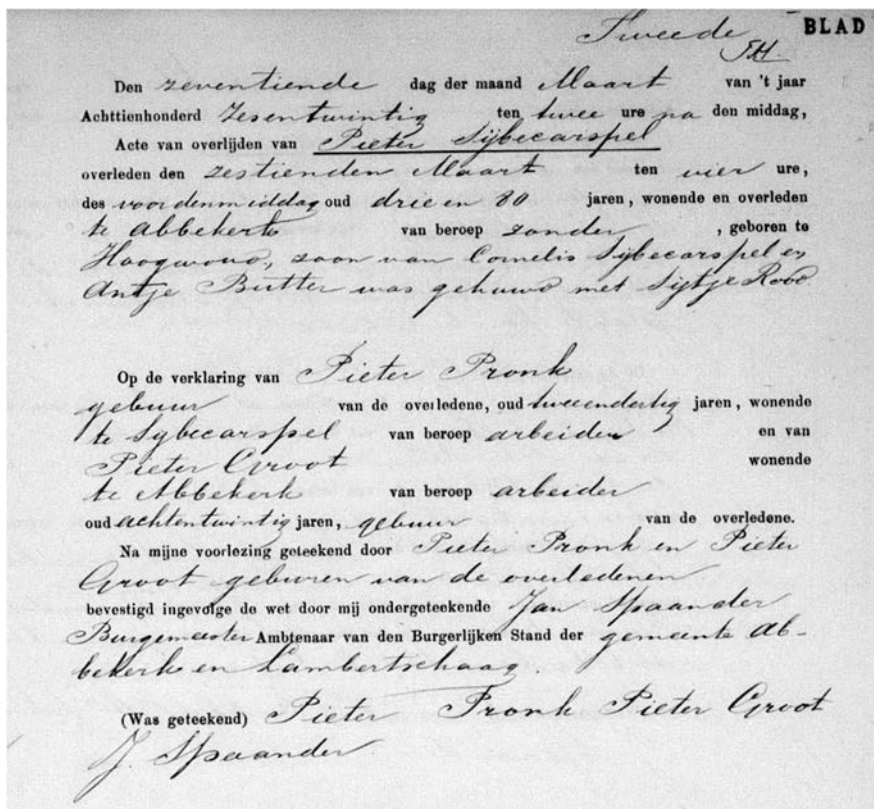 Tweede BLAD
Den zeventiende dag der maand Maart van 't jaar
Achttienhonderd Zesentwintig ten twee ure na den middag,
Acte van overlijden van Pieter Sijbecarspel
overleden den zestienden Maart ten vier ure,
des voordenmiddag oud drie en 80 jaren, wonende en overleden
te Abbekerk van beroep zonder , geboren te
Hoogwoud, zoon van Cornelis Sijbecarspel en
Antje Butter was gehuwd met Sijtje Rood
Op de verklaring van Pieter Pronk
gebuur van de overledene, oud tweeendertig jaren, wonende
te Sybecarspel van beroep arbeider en van
Pieter Groot wonende
te Abbekerk van beroep arbeider
oud achtentwintig jaren, gebuur van de overledene.
Na mijne voorlezing geteekend door Pieter Pronk en Pieter
Groot geburen van de overledenen
bevestigd ingevolge de wet door mij ondergeteekende Jan Spaander
Burgemeester Ambtenaar van den Burgerlijken Stand der gemeente Ab-
bekerk en Lambertschaag.
(Was geteekend) Pieter Pronk Pieter Groot
J. Spaander